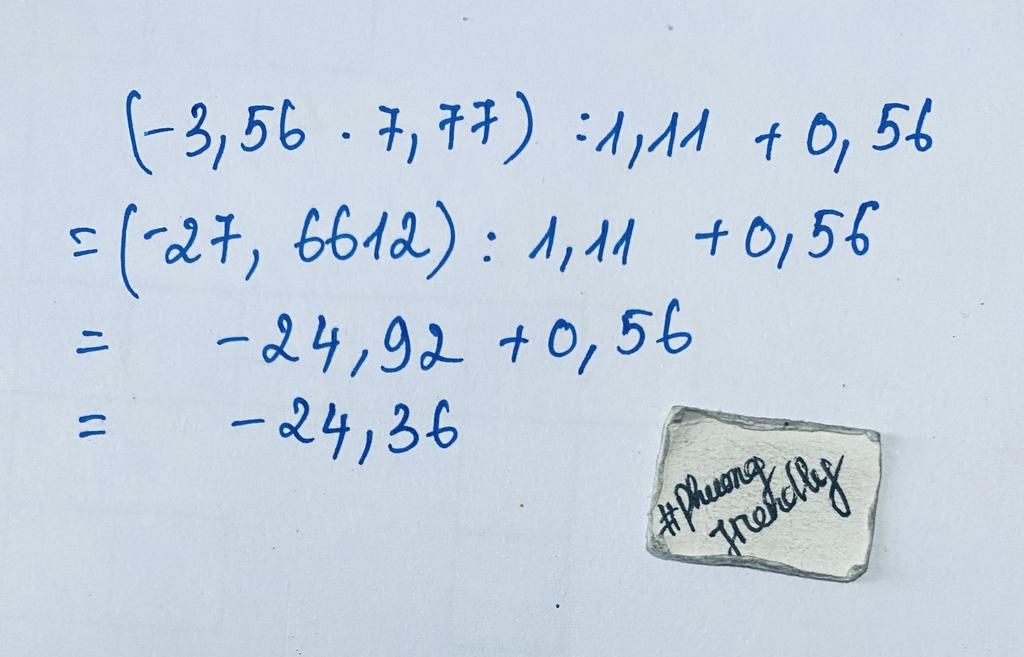 (-3,56 . 7,77) : 1,11 + 0,56
= (-27, 6612) : 1,11 + 0,56
= -24,92 + 0,56
= -24,36
#Phuong
friendly